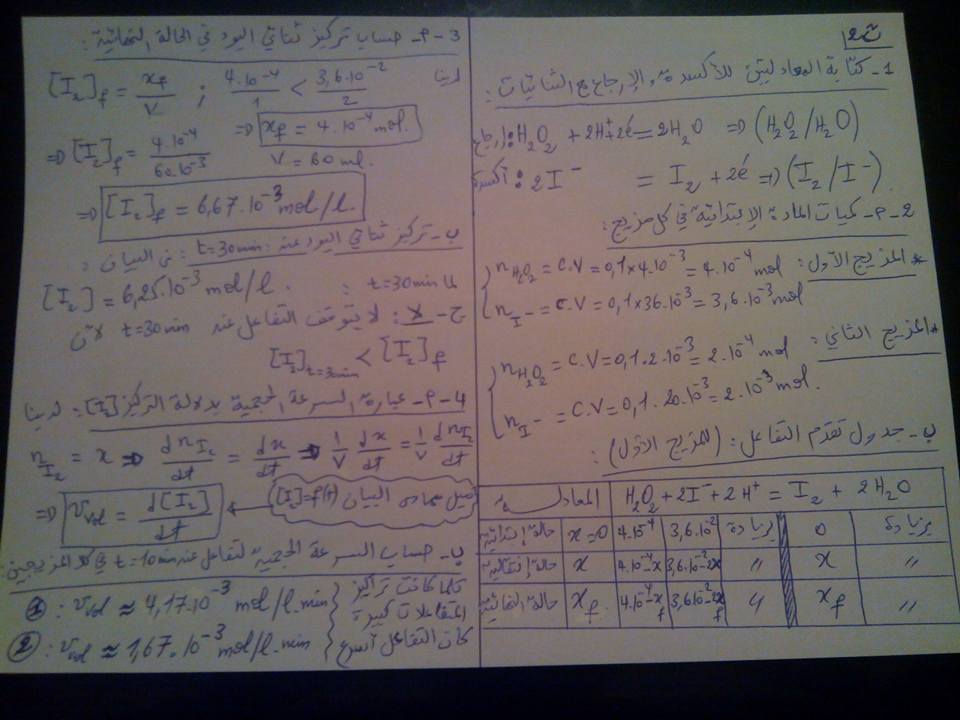 ت2
1- كتابة المعادلتين للأكسدة و الإرجاع مع الثنائيات :
إرجاع: H₂O₂ + 2H⁺ + 2é = 2H₂O ⇒ (H₂O₂/H₂O)
أكسدة: 2I⁻ = I₂ + 2é ⇒ (I₂/I⁻)
2-P- كميات المادة الإبتدائية في كل مزيج:
* المزيج الأول: n_H₂O₂ = C.V = 0,1×4.10⁻³ = 4.10⁻⁴ mol
n_I⁻ = C.V = 0,1×36.10⁻³ = 3,6.10⁻³ mol
* المزيج الثاني: n_H₂O₂ = C.V = 0,1.2.10⁻³ = 2.10⁻⁴ mol
n_I⁻ = C.V = 0,1.20.10⁻³ = 2.10⁻³ mol.
ب- جدول تقدم التفاعل: (للمزيج الأول):
المعادلة H₂O₂ + 2I⁻ + 2H⁺ = I₂ + 2H₂O
حالة إبتدائية x=0 4.10⁻⁴ 3,6.10⁻² بزيادة 0 بزيادة
حالة إنتقالية x 4.10⁻⁴-x 3,6.10⁻²-2x " x "
حالة النهائية x_f 4.10⁻⁴-x_f 3,6.10⁻²-2x_f " x_f "
3-P- حساب تركيز ثنائي اليود في الحالة النهائية:
لدينا [I₂]_f = x_f/V ; 4.10⁻⁴/1 < 3,6.10⁻²/2
⇒ x_f = 4.10⁻⁴ mol.
⇒ [I₂]_f = 4.10⁻⁴/60.10⁻³ V = 60 ml.
⇒ [I₂]_f = 6,67.10⁻³ mol/l.
ب- تركيز ثنائي اليود عند: t=30min: من البيان:
لما t=30min : [I₂] = 6,25.10⁻³ mol/l.
ج- لا: لا يتوقف التفاعل عند t=30min لأن
[I₂]_t=30min < [I₂]_f
4-P- عبارة السرعة الحجمية بدلالة التركيز [I₂]: لدينا
n_I₂ = x ⇒ dn_I₂/dt = dx/dt ⇒ 1/V dx/dt = 1/V dn_I₂/dt
⇒ v_vol = d[I₂]/dt ← ميل مماس البيان [I₂]=f(t)
ب- حساب السرعة الحجمية للتفاعل عند t=10min في كلا المزيجين
① : v_vol ≈ 4,17.10⁻³ mol/l.min
② : v_vol ≈ 1,67.10⁻³ mol/l.min
كلما كانت تراكيز
المتفاعلات كبيرة
كان التفاعل أسرع